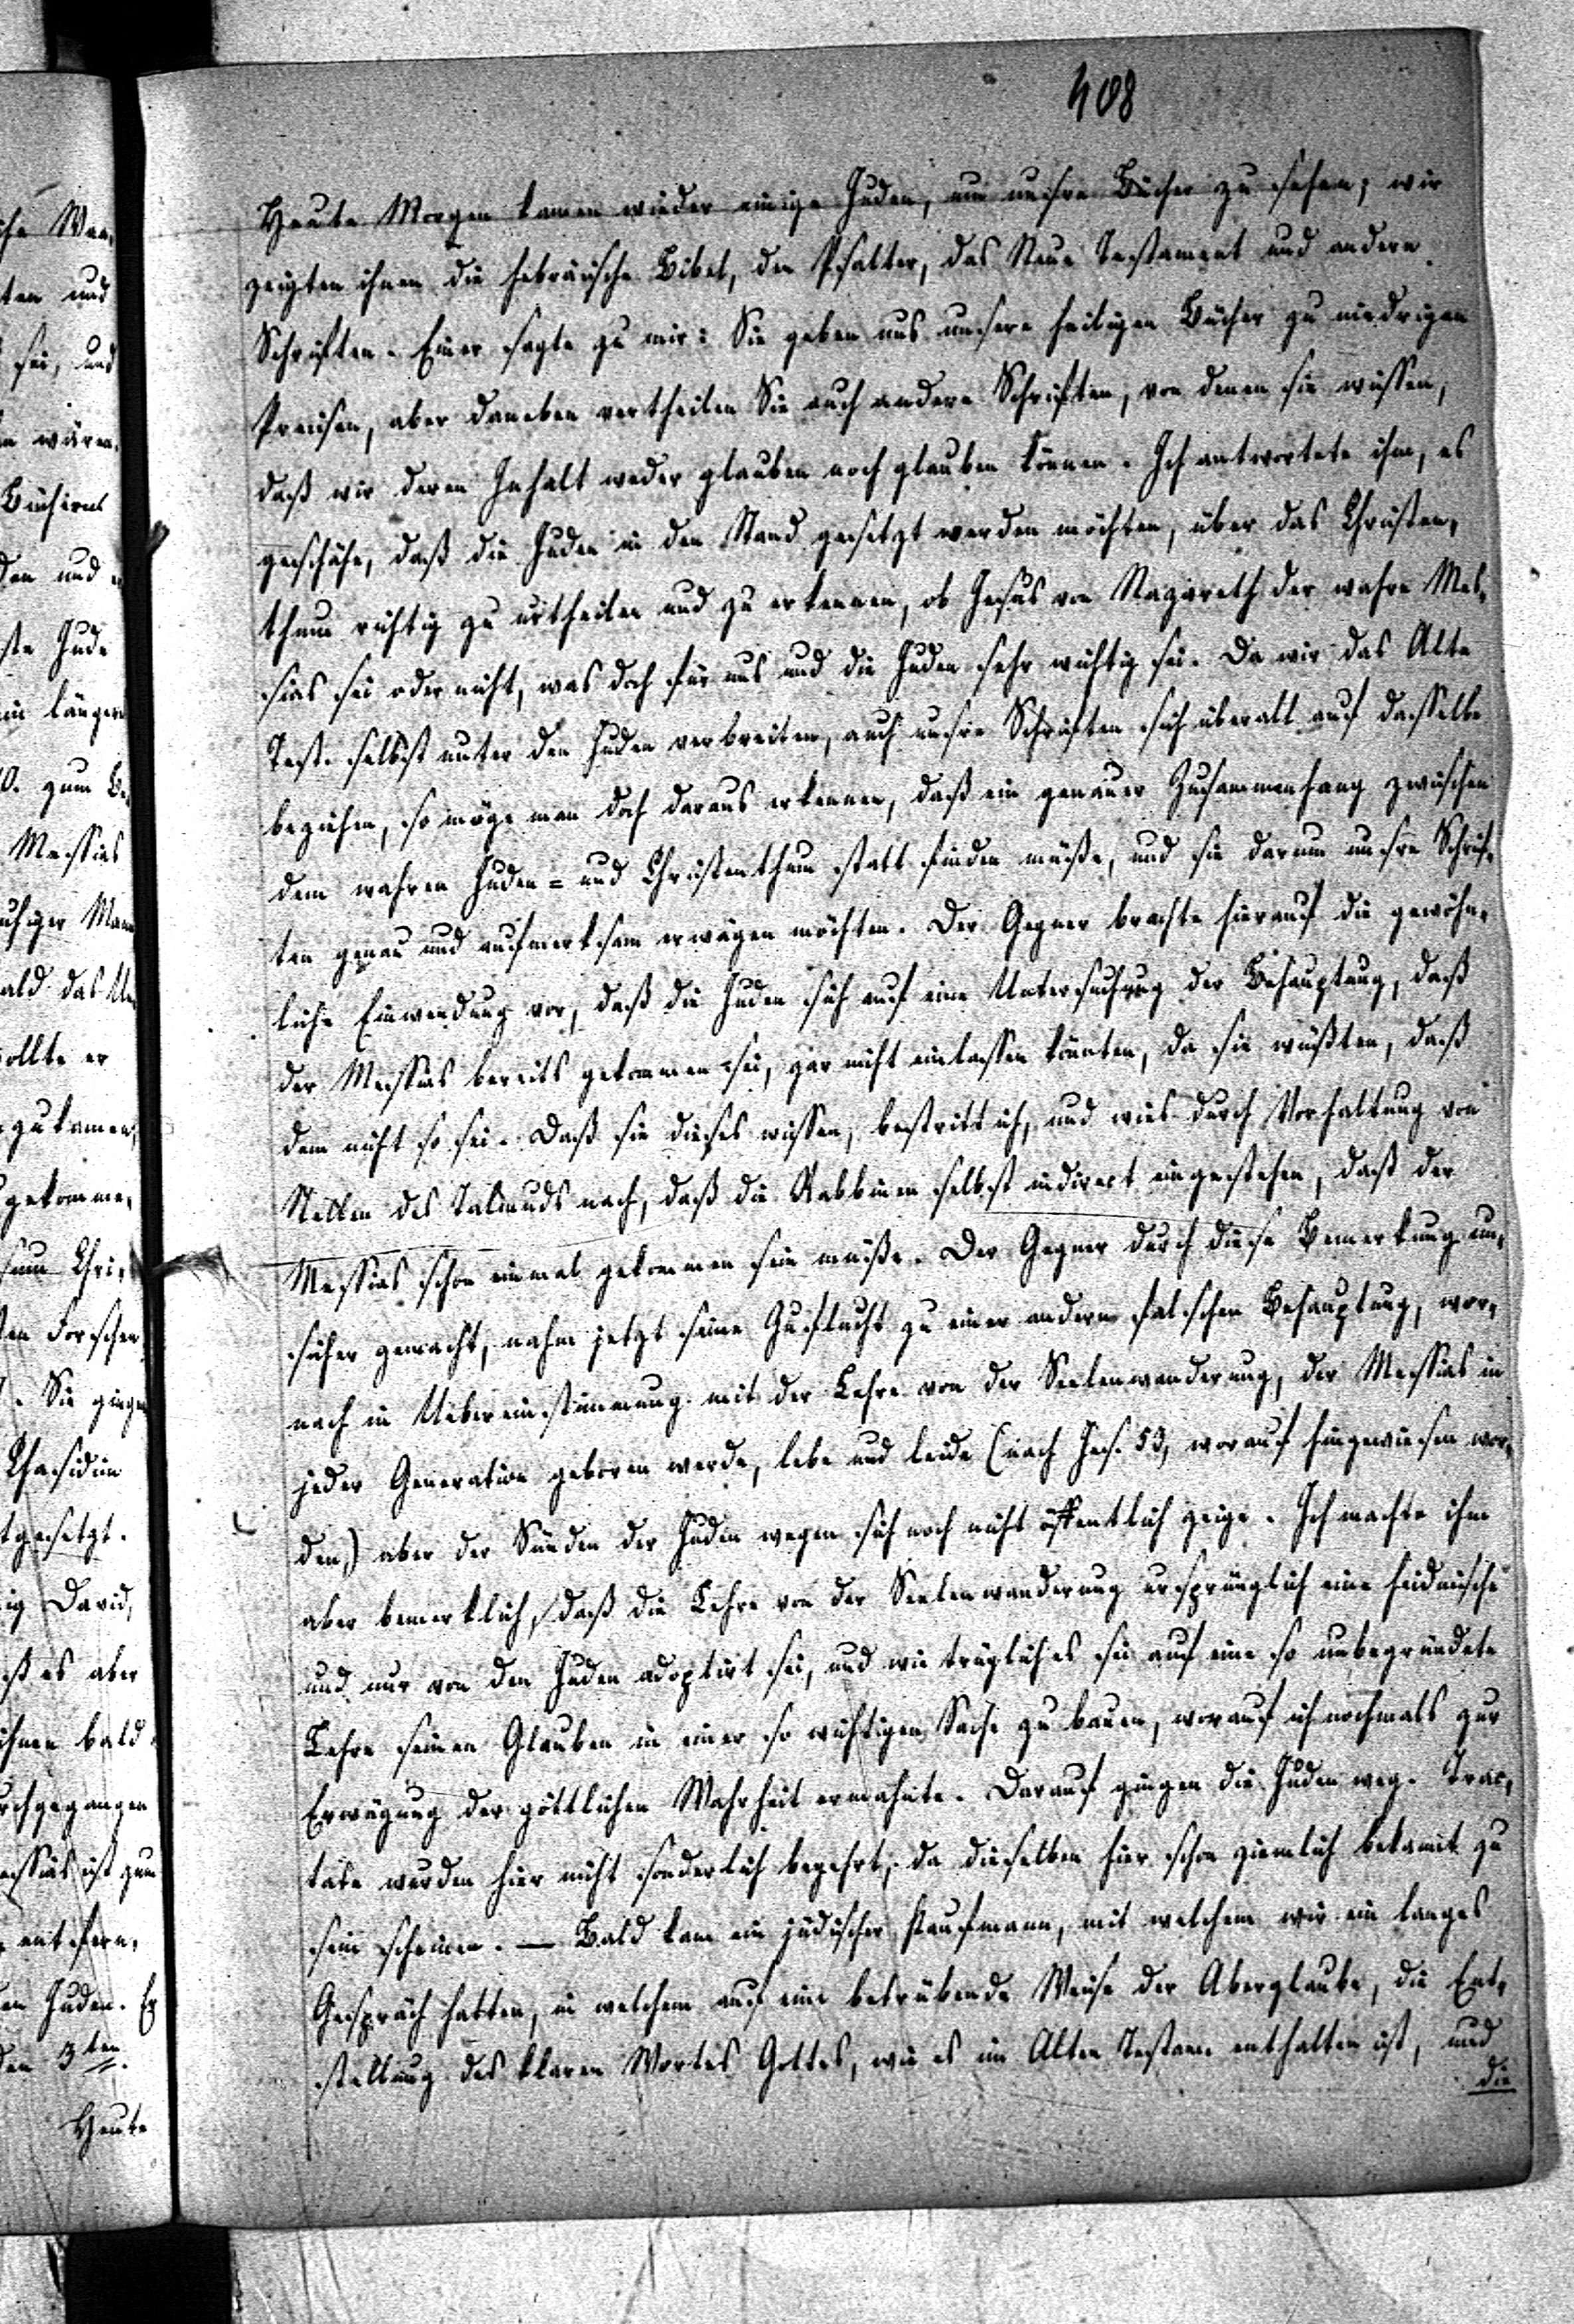 408
Heute Morgen kamen wieder einige Juden, um unsre Bücher zu sehen; wir
zeigten ihnen die hebräische Bibel, den Psalter, das Neue Testament und andere
Schriften. Einer sagte zu mir: Sie geben uns unsere heiligen Bücher zu niedrigen
Preisen, aber daneben vertheilen Sie auch andere Schriften, von denen sie wissen,
daß wir deren Inhalt weder glauben noch glauben können. Ich antwortete ihm, es
geschähe, daß die Juden in den Stand gesetzt werden möchten, über das Christen,
thum richtig zu urtheilen und zu erkennen, ob Jesus von Nazareth der wahre Mes,
sias sei oder nicht, was doch für uns und die Juden sehr wichtig sei. Da wir das Alte
Test. selbst unter den Juden verbreiten, auch unsre Schriften sich überall auf dasselbe
beziehen, so möge man doch daraus erkennen, daß ein genauer Zusammenhang zwischen
dem wahren Juden= und Christenthum statt finden müße, und sie darum unsre Schrif,
ten genau und aufmerksam erwägen möchten. Der Gegner brachte hierauf die gewöhn,
liche Einwendung vor, daß die Juden sich auf eine Untersuchung der Behauptung, daß
der Messias bereits gekommen sei, gar nicht einlassen könnten, da sie wüßten, daß
dem nicht so sei. Daß sie dieses wissen, bestritt ich, und wies durch Vorhaltung von
Stellen des Talmuds nach, daß die Rabbinen selbst indirect eingestehen, daß der
Messias schon einmal gekommen sein müße. Der Gegner durch diese Bemerkung un,
sicher gemacht, nahm jetzt seine Zuflucht zu einer andern falschen Behauptung, wor,
nach in Uebereinstimmung mit der Lehre von der Seelenwanderung, der Messias in
jeder Generation geboren werde, lebe und leide (nach Jes. 53, worauf hingewiesen wor,
den,) aber der Sünden der Juden wegen sich noch nicht öffentlich zeige. Ich machte ihm
aber bemerklich, daß die Lehre von der Seelenwanderung ursprünglich eine heidnische
und nur von den Juden adoptirt sei, und wie trüglich es sei auf eine so unbegründete
Lehre seinen Glauben in einer so wichtigen Sache zu bauen, worauf ich nochmals zur
Erwägung der göttlichen Wahrheit ermahnte. Darauf gingen die Juden weg. Trac,
tate wurden hier nicht sonderlich begehrt, da dieselben hier schon ziemlich bekannt zu
sein scheinen. — Bald kam ein jüdischer Kaufmann, mit welchem wir ein langes
Gespräch hatten, in welchem auf eine betrübende Weise der Aberglaube, die Ent,
stellung des klaren Wortes Gottes, wie es im Alten Testam. enthalten ist, und
die